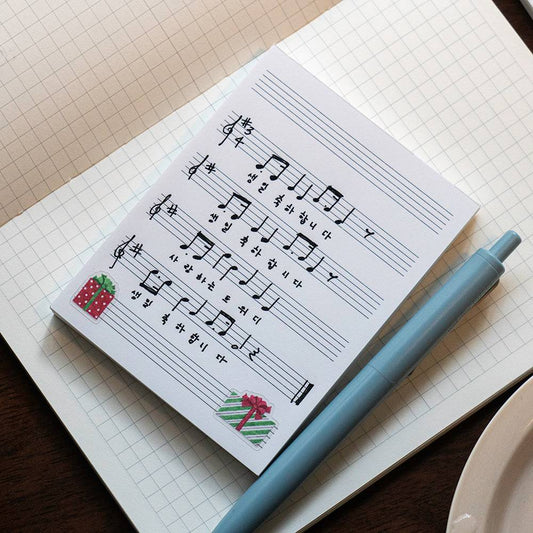 3
4
생일 축하합니다
생일 축하합니다
사랑하는 토워디
생일 축하합니다